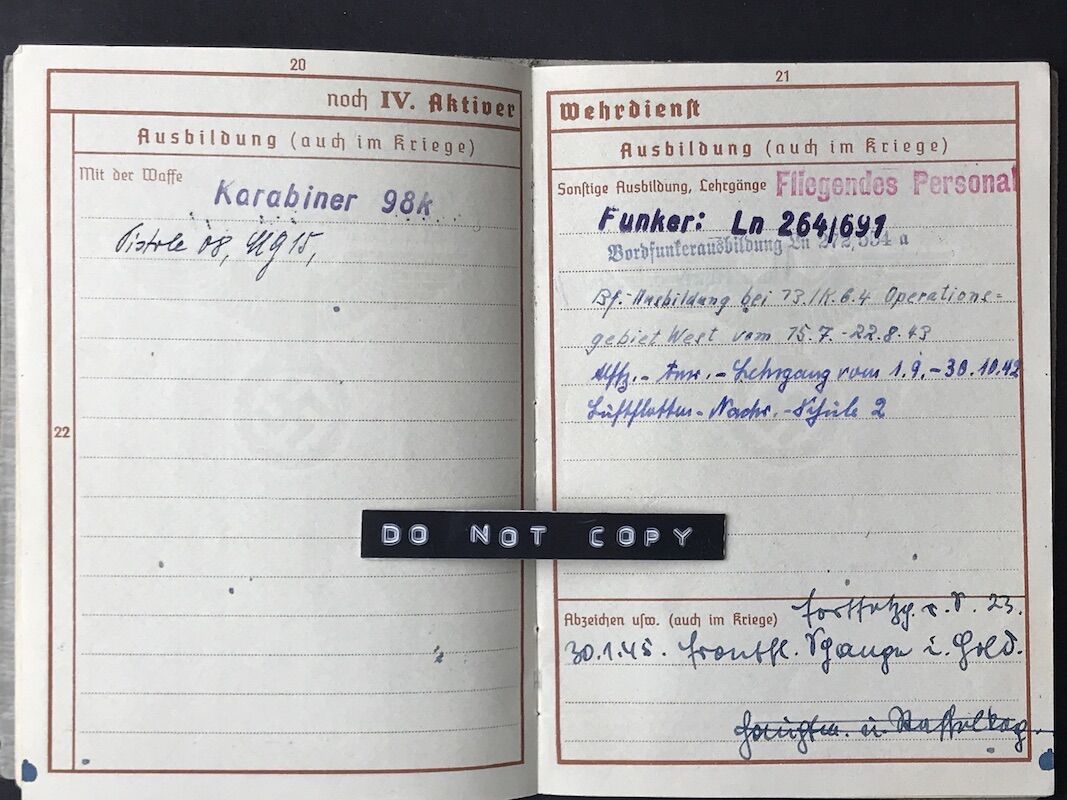 20
noch IV. Aktiver
Ausbildung (auch im Kriege)
Mit der Waffe
Karabiner 98k
Pistole 08, MG 15,
22
21
Wehrdienst
Ausbildung (auch im Kriege)
Sonstige Ausbildung, Lehrgänge
Fliegendes Personal
Funker: Ln 264/691
Bordfunkerausbildung Ln
Bf.-Ausbildung bei 13./K.G. 4 Operations=
gebiet West vom 15.7.-22.8.43
Uffz.-Anw.-Lehrgang vom 1.9.-30.10.42
Luftflotten-Nachr.-Schule 2
DO NOT COPY
Abzeichen usw. (auch im Kriege)
Fortsetzg. s. S. 23.
30.1.45. Frontfl. Spange i. Gold.